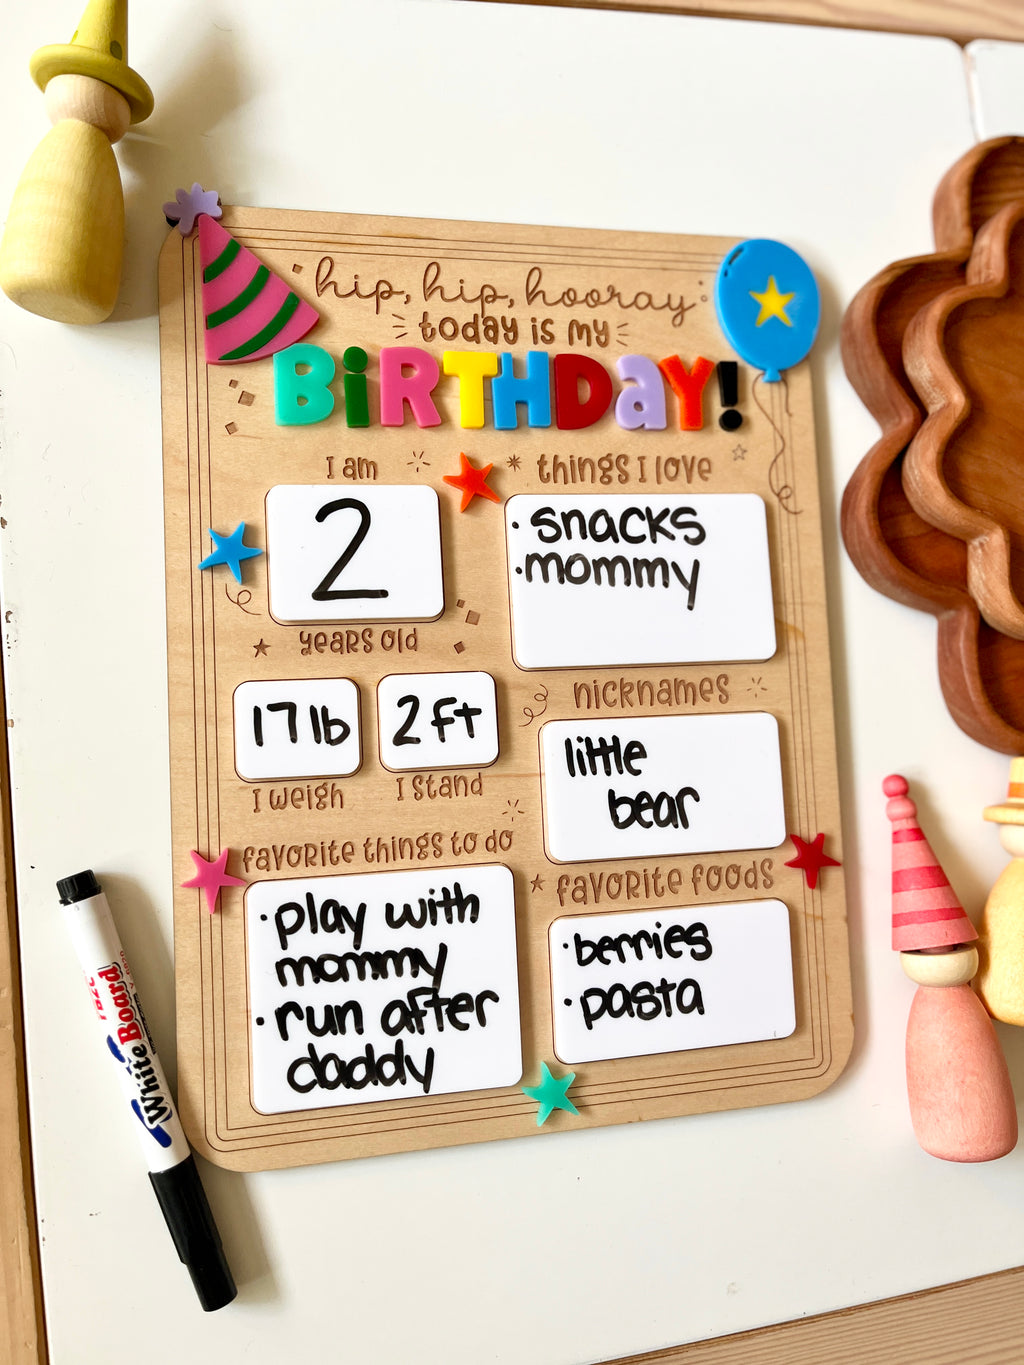 hip, hip, hooray
today is my
BiRTHDaY!
I am
2
years old
things I love
· snacks
· mommy
17 lb
I weigh
2 ft
I stand
nicknames
little
bear
favorite things to do
· play with
mommy
· run after
daddy
favorite foods
· berries
· pasta
WhiteBoard